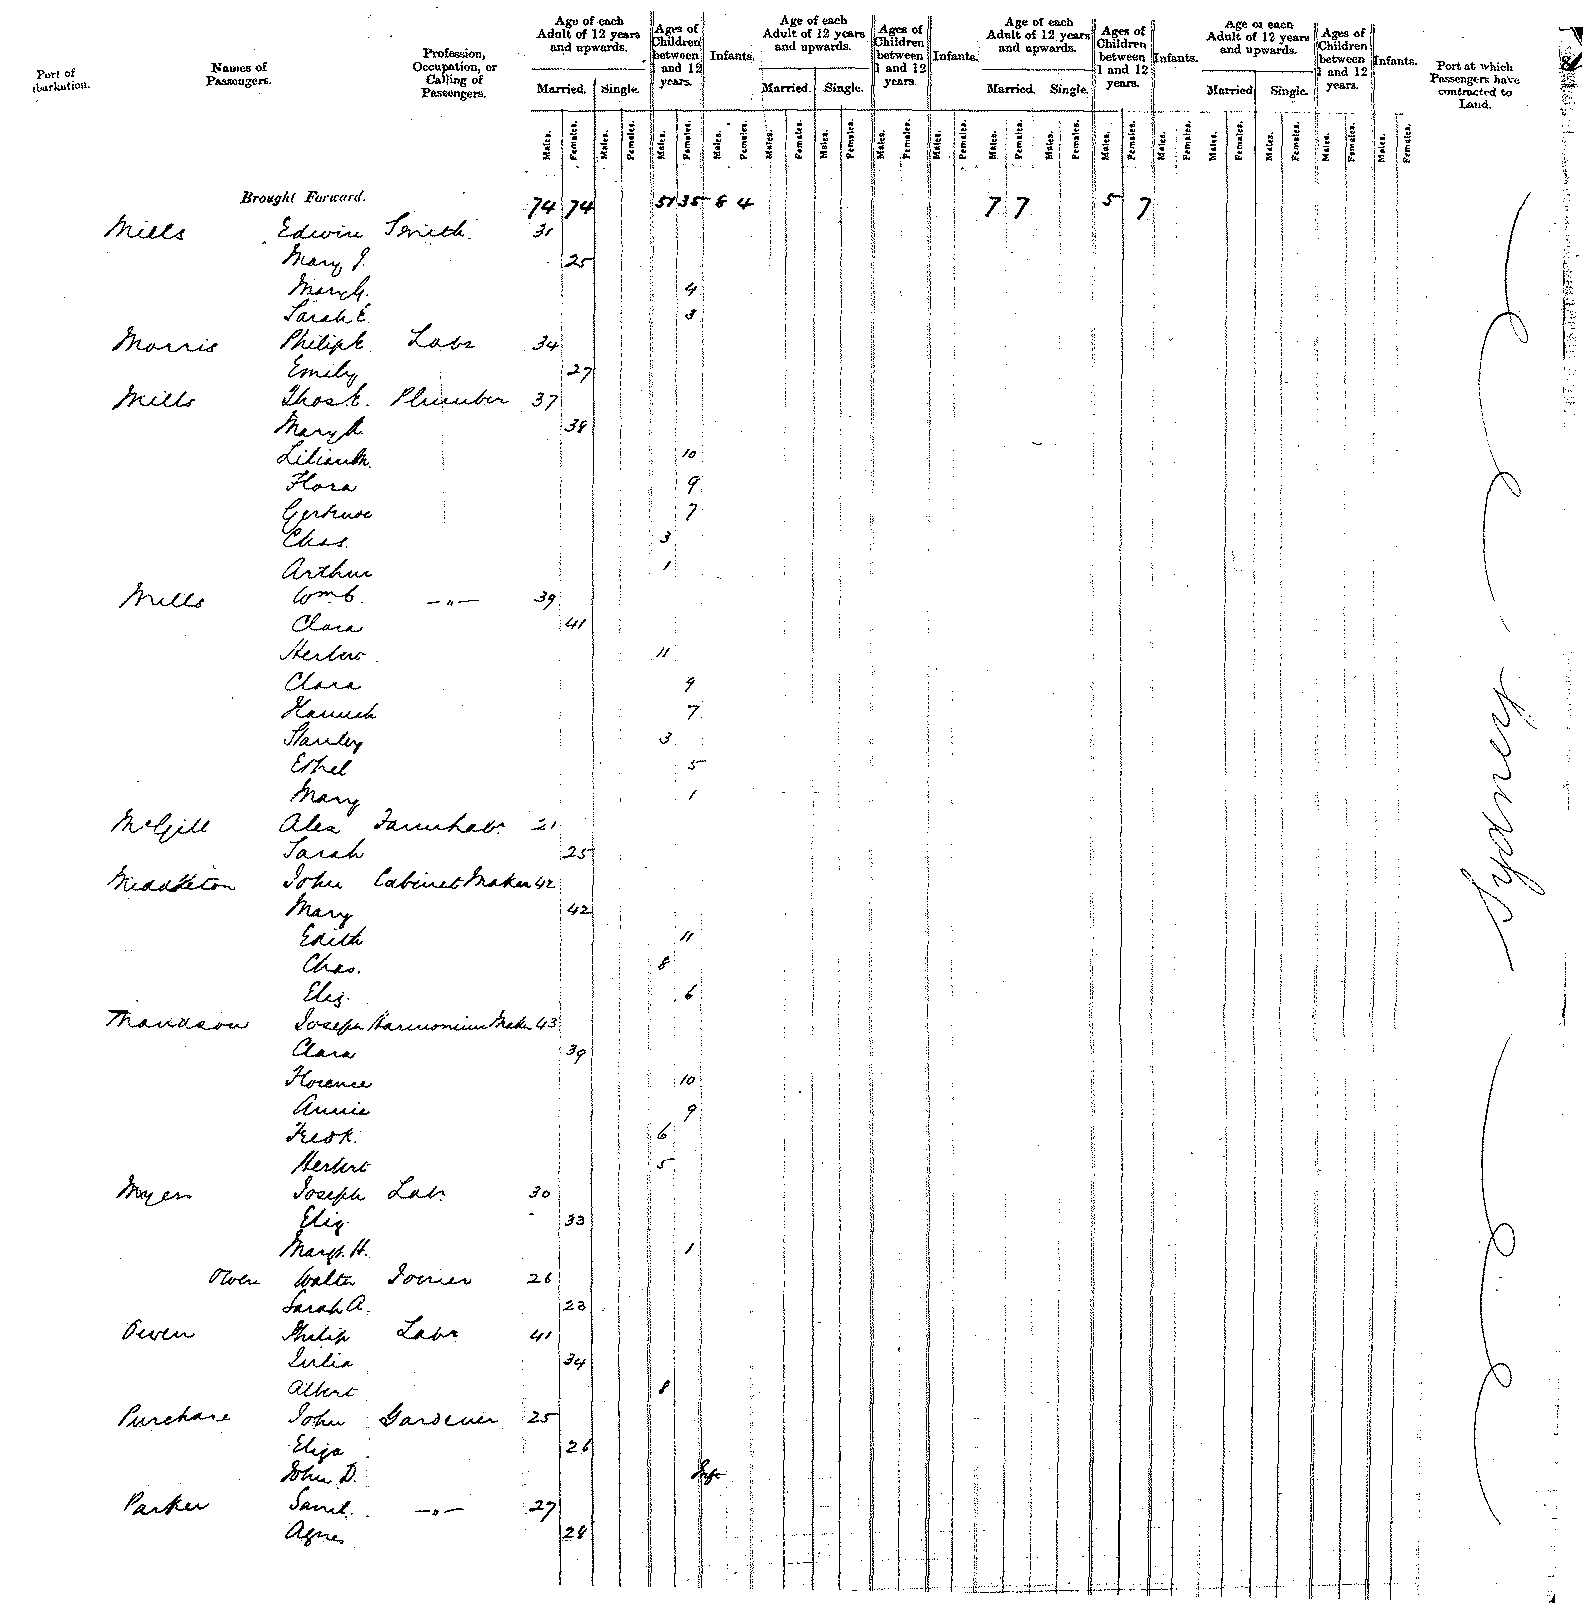 Port of
barkation.
Names of
Passengers.
Profession,
Occupation, or
Calling of
Passengers.
Age of each
Adult of 12 years
and upwards.
Married. Single.
Ages of
Children
between
and 12
years.
Infants.
Age of each
Adult of 12 years
and upwards.
Married Single.
Ages of
Children
between
1 and 12
years.
Infants.
Age of each
Adult of 12 years
and upwards.
Married. Single.
Ages of
Children
between
1 and 12
years.
Infants.
Age of each
Adult of 12 years
and upwards.
Married Single.
Ages of
Children
between
1 and 12
years.
Infants.
Port at which
Passengers have
contracted to
Land.
Males. Females. Males. Females. Males. Females. Males. Females. Males. Females. Males. Females. Males. Females. Males. Females. Males. Females. Males. Females. Males. Females. Males. Females. Males. Females. Males. Females. Males. Females. Males. Females.
Brought Forward. 74 74 51 35 8 4 7 7 5 7
Mills Edwin Smith 31
Mary J. 25
Mary G. 4
Sarah E. 3
Morris Philip E. Labr 34
Emily 27
Mills Thos E. Plumber 37
Mary A 38
Lilian M. 10
Flora 9
Gertrude 7
Chas. 3
Arthur 1
Mills Wm C. —„— 39
Clara 41
Herbert 11
Clara 9
Hannah 7
Stanley 3
Ethel 5
Mary 1
McGill Alex Farm Labr. 21
Sarah 25
Middleton John Cabinet Maker 42
Mary 42
Edith 11
Chas. 8
Eliz. 6
Joseph Harmonium Maker 43
Clara 39
Florence 10
Annie 9
Fredk. 6
Herbert 5
Myers Joseph Lab. 30
Eliz. 33
Margt. H. 1
Owen Walter Joiner 26
Sarah A. 23
Owen Philip Labr 41
Julia 34
Albert 8
Purchase John Gardener 25
Eliza 26
John D. Inft
Parker Saml. —„— 27
Agnes 28
Sydney